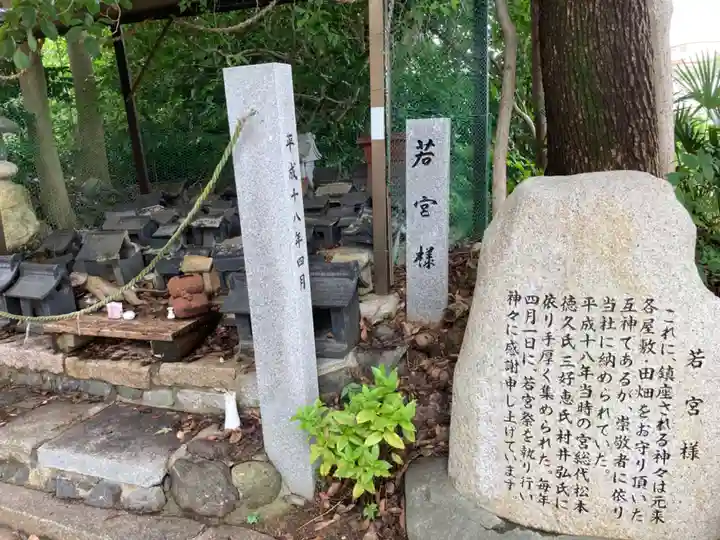 平成十八年四月
若宮様
若宮様
これに、鎮座される神々は元来
各屋敷、田畑をお守り頂いた
互神であるが、崇敬者に依り
当社に納められていた。
平成十八年当時の宮総代松本
徳久氏三好惠氏村井弘氏に
依り手厚く集められた。毎年
四月一日に、若宮祭を執り行い
神々に感謝申し上げています。